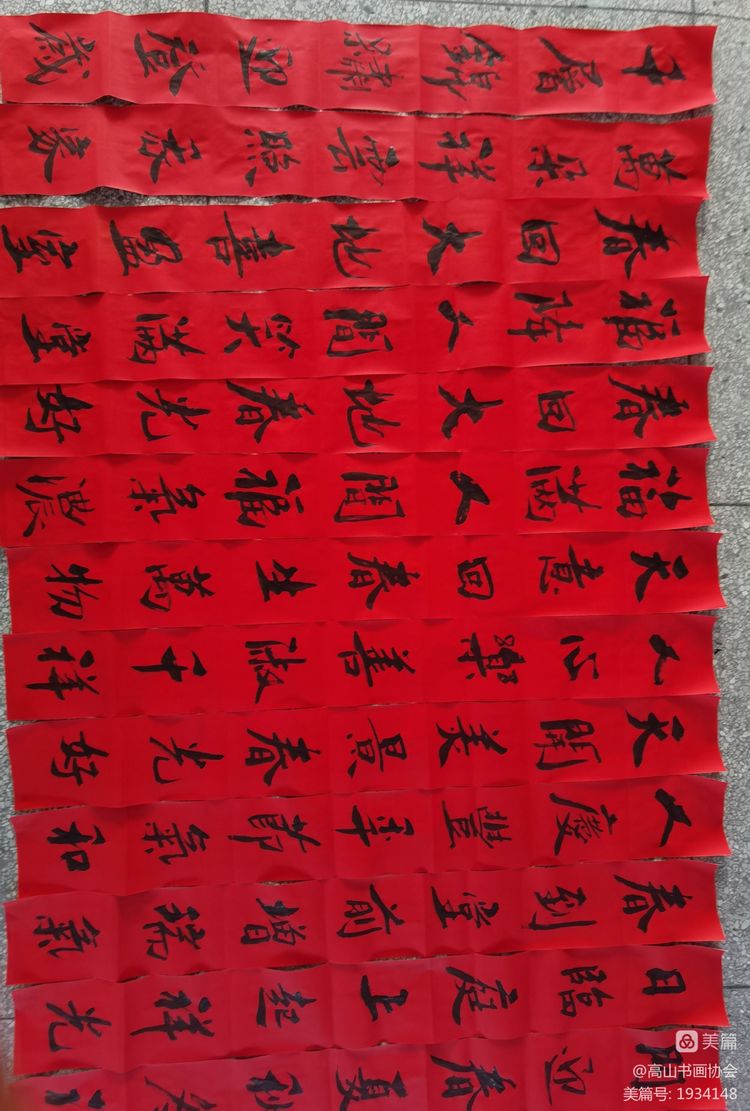 千層錦繡迎登歲
萬朵祥雲照家
春回大地喜盈室
福降人間笑滿堂
春回大地春光好
福滿人間福氣濃
天意回春生萬物
人心樂善淑千祥
天開美景春光好
人慶豐年節氣和
春到堂前增瑞氣
日臨庭上起祥光
門迎春夏秋
美篇
@高山书画协会
美篇号: 1934148